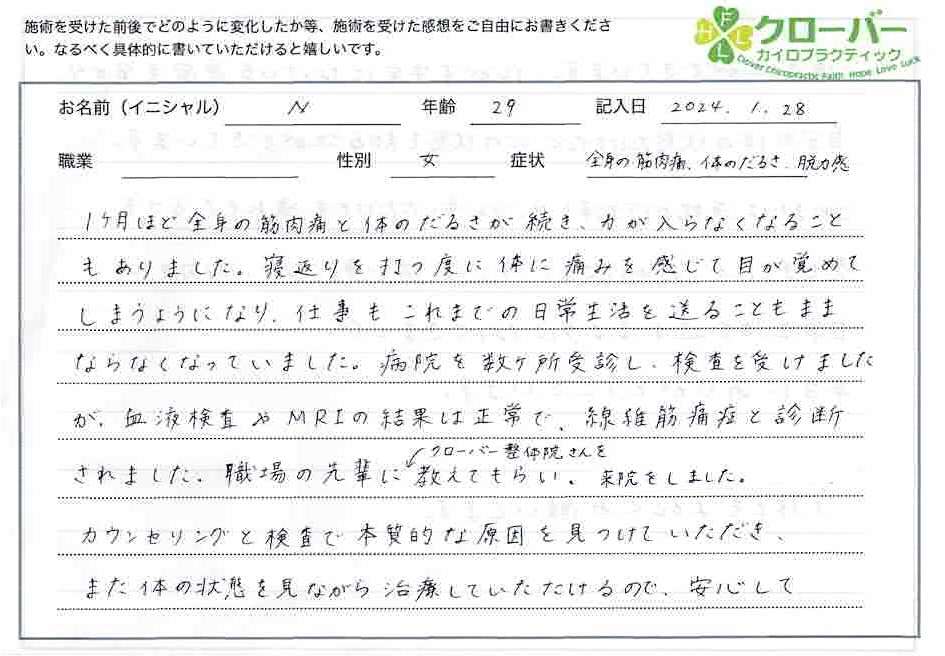 施術を受けた前後でどのように変化したか等、施術を受けた感想をご自由にお書きくださ
い。なるべく具体的に書いていただけると嬉しいです。
FHLL
クローバー
カイロプラクティック
Clover chiropractic Faith Hope Love Luck
お名前（イニシャル） N 年齢 29 記入日 2024. 1. 28
職業 性別 女 症状 全身の筋肉痛、体のだるさ、脱力感
1ヶ月ほど全身の筋肉痛と体のだるさが続き、力が入らなくなること
もありました。寝返りを打つ度に体に痛みを感じて目が覚めて
しまうようになり、仕事もこれまでの日常生活を送ることもまま
ならなくなっていました。病院を数ヶ所受診し、検査を受けました
が、血液検査やMRIの結果は正常で、線維筋痛症と診断
クローバー整体院さんを
されました。職場の先輩に教えてもらい、来院をしました。
カウンセリングと検査で本質的な原因を見つけていただき、
また体の状態を見ながら治療していただけるので、安心して